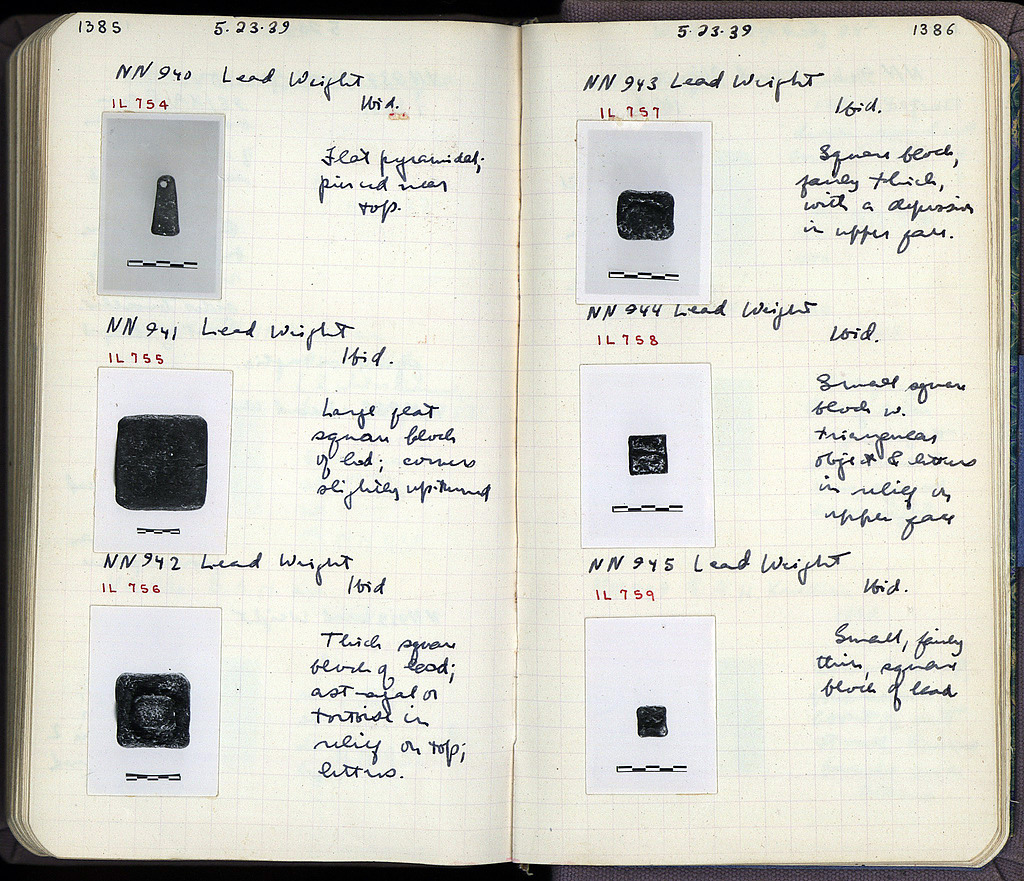 1385 5.23.39
NN 940 Lead Weight
IL 754 Ibid.
Flat pyramidal;
pierced near
top.
NN 941 Lead Weight
IL 755 Ibid.
Large flat
square block
of lead; corners
slightly upturned
NN 942 Lead Weight
IL 756 Ibid
Thick square
block of lead;
astragal or
tortoise in
relief on top;
letters.
5.23.39 1386
NN 943 Lead Weight
IL 757 Ibid.
Square block,
fairly thick,
with a depression
in upper face.
NN 944 Lead Weight
IL 758 Ibid.
Small square
block w.
triangular
object & letters
in relief on
upper face
NN 945 Lead Weight
IL 759 Ibid.
Small, fairly
thin, square
block of lead